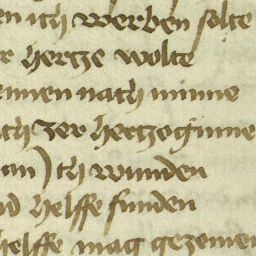 en ich werben solte
r hertze wolte
ennen nach minne
ch zer hertzoginne
an) ch wunden
nd helffe funden
helffe mag gezemen